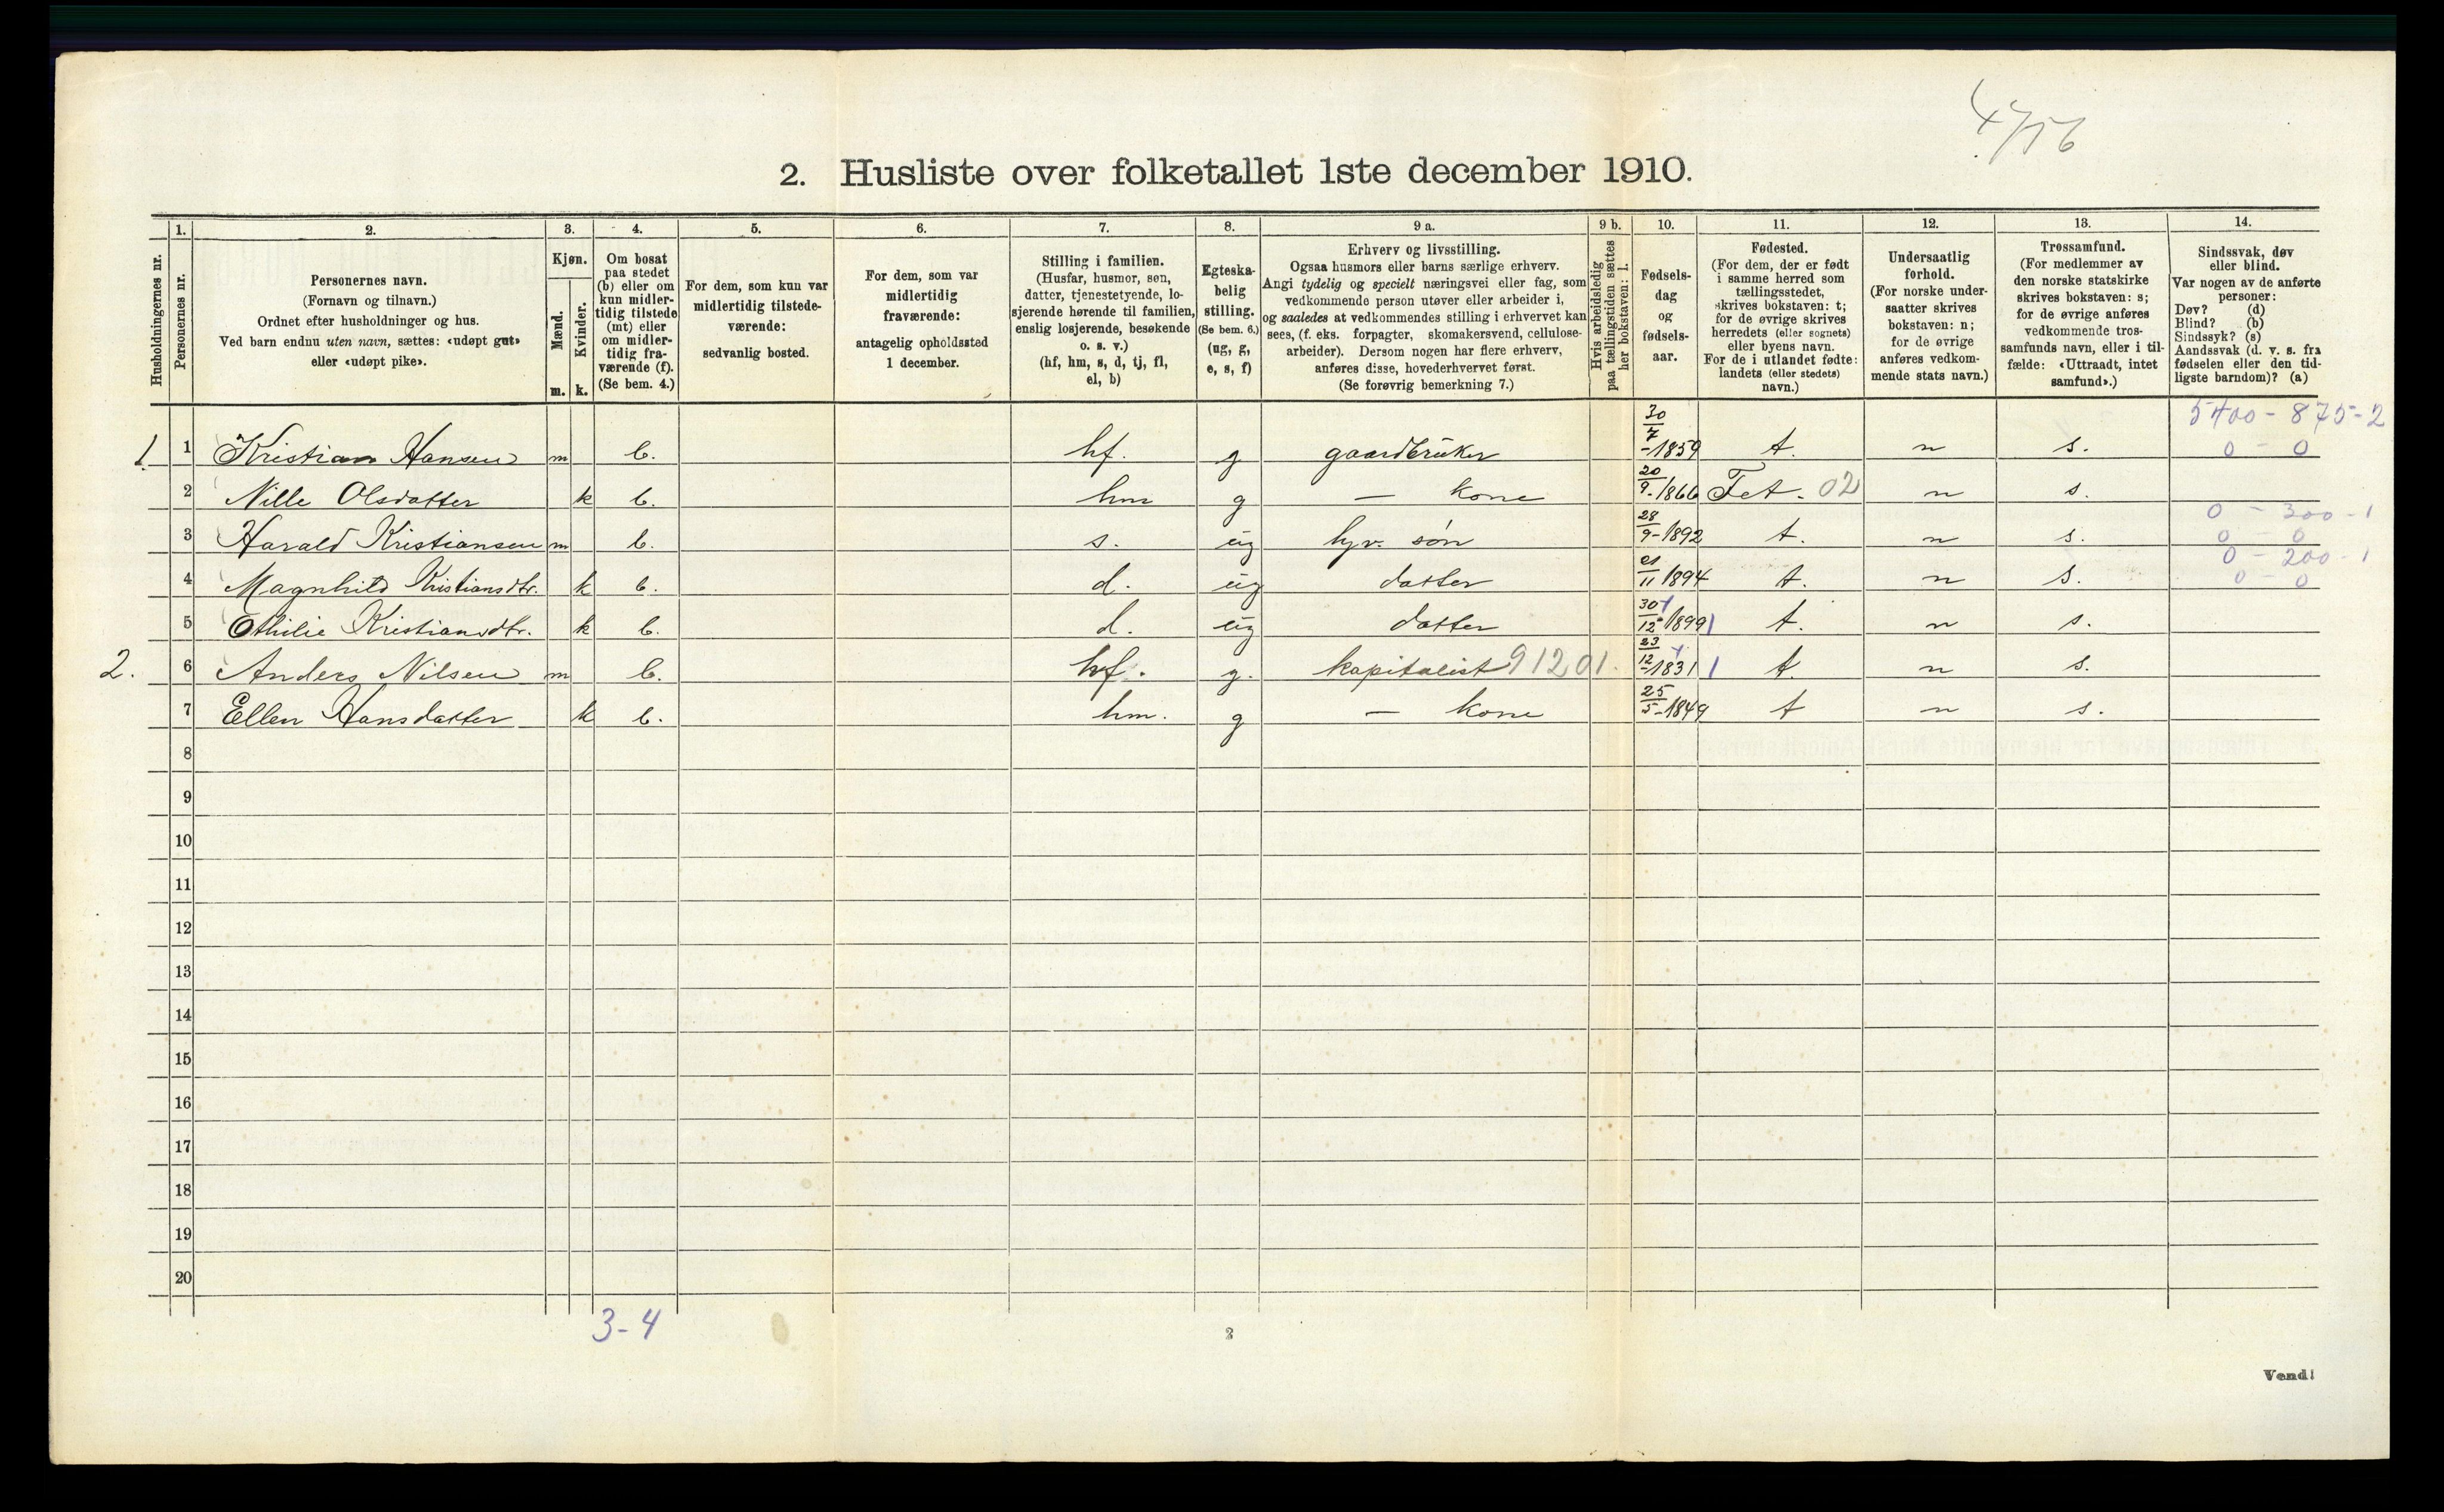 4/56
2. Husliste over folketallet 1ste december 1910.
Husholdningernes nr.
1. Personernes nr.
2. Personernes navn.
(Fornavn og tilnavn.)
Ordnet efter husholdninger og hus.
Ved barn endnu uten navn, sættes: «udøpt gut»
eller «udøpt pike».
3. Kjøn.
Mænd. m.
Kvinder. k.
4. Om bosat
paa stedet
(b) eller om
kun midler-
tidig tilstede
(mt) eller
om midler-
tidig fra-
værende (f).
(Se bem. 4.)
5. For dem, som kun var
midlertidig tilstede-
værende:
sedvanlig bosted.
6. For dem, som var
midlertidig
fraværende:
antagelig opholdssted
1 december.
7. Stilling i familien.
(Husfar, husmor, søn,
datter, tjenestetyende, lo-
sjerende hørende til familien,
enslig losjerende, besøkende
o. s. v.)
(hf, hm, s, d, tj, fl,
el, b)
8. Egteska-
belig
stilling.
(Se bem. 6.)
(ug, g,
e, s, f)
9 a. Erhverv og livsstilling.
Ogsaa husmors eller barns særlige erhverv.
Angi tydelig og specielt næringsvei eller fag, som
vedkommende person utøver eller arbeider i,
og saaledes at vedkommendes stilling i erhvervet kan
sees, (f. eks. forpagter, skomakersvend, cellulose-
arbeider). Dersom nogen har flere erhverv,
anføres disse, hovederhvervet først.
(Se forøvrig bemerkning 7.)
9 b. Hvis arbeidsledig
paa tællingstiden sættes
her bokstaven: l.
10. Fødsels-
dag
og
fødsels-
aar.
11. Fødested.
(For dem, der er født
i samme herred som
tællingsstedet,
skrives bokstaven: t;
for de øvrige skrives
herredets (eller sognets)
eller byens navn.
For de i utlandet fødte:
landets (eller stedets)
navn.)
12. Undersaatlig
forhold.
(For norske under-
saatter skrives
bokstaven: n;
for de øvrige
anføres vedkom-
mende stats navn.)
13. Trossamfund.
(For medlemmer av
den norske statskirke
skrives bokstaven: s;
for de øvrige anføres
vedkommende tros-
samfunds navn, eller i til-
fælde: «Uttraadt, intet
samfund».)
14. Sindssvak, døv
eller blind.
Var nogen av de anførte
personer:
Døv? (d)
Blind? (b)
Sindssyk? (s)
Aandssvak (d. v. s. fra
fødselen eller den tid-
ligste barndom)? (a)
5400 - 875-2
1. 1 Kristian Hansen m b. hf. g gaardbruker 30/7 - 1859 t. n s. 0 - 0
2 Nille Olsdatter k b. hm g — kone 20/9 - 1866 Fet. 02 n s.
0 - 300 - 1
3 Harald Kristiansen m b. s. ug hjv. søn 28/9 - 1892 t. n s. 0 - 0
0 - 200 - 1
4 Magnhild Kristiansdtr. k b. d. ug datter 21/11 1894 t. n s. 0 - 0
5 Othilie Kristiansdtr. k b. d. ug datter 30/12 1899 1 t. n s.
2. 6 Anders Nilsen m b. hf. g. kapitalist 91201. 23/12 - 1831 1 t. n s.
7 Ellen Hansdatter k b. hm. g — kone 25/5 - 1849 t n s.
8
9
10
11
12
13
14
15
16
17
18
19
20
3-4
Vend!